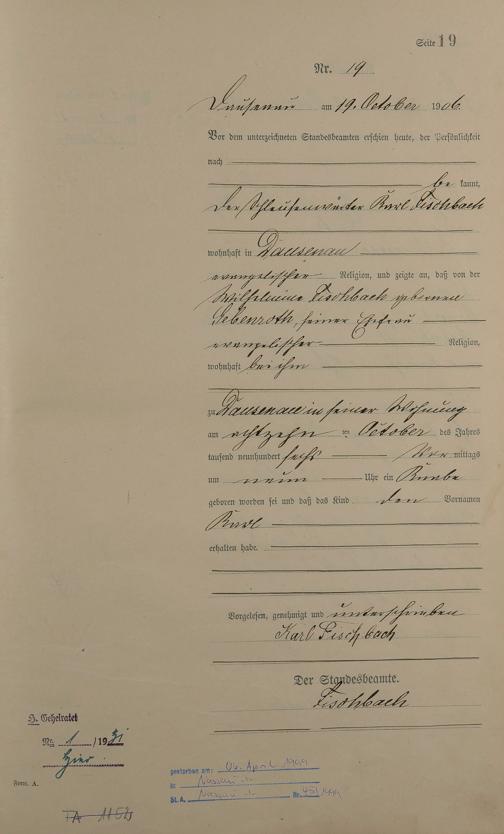 Seite 19
Nr. 19
Dausenau am 19. October 1906.
Vor dem unterzeichneten Standesbeamten erschien heute, der Persönlichkeit
nach
be kannt,
der Schleusenwärter Karl Fischbach
wohnhaft in Dausenau
evangelischer Religion, und zeigte an, daß von der
Wilhelmine Fischbach geborenen
Lebenroth, seiner Ehefrau
evangelischer Religion,
wohnhaft bei ihm
zu Dausenau in seiner Wohnung
am achtzehn ten October des Jahres
tausend neunhundert sechs Vor mittags
um neun Uhr ein Knabe
geboren worden sei und daß das Kind den Vornamen
Karl
erhalten habe.
Vorgelesen, genehmigt und unterschrieben
Karl Fischbach
Der Standesbeamte.
Fischbach
Geheiratet
Nr. 1 /1931
hier
Form. A.
gestorben am: 06. April 1999
in Nassau
St. A. Nassau Nr. 45/1999